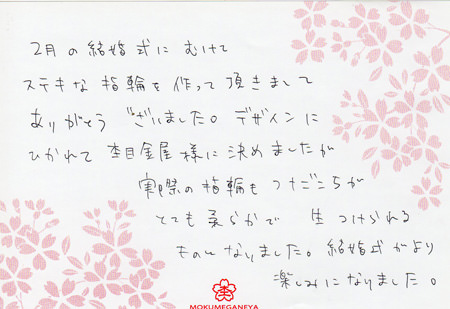 2月の結婚式にむけて
ステキな指輪を作って頂きまして
ありがとうございました。デザインに
ひかれて杢目金屋様に決めましたが
実際の指輪もつけごこちが
とても柔らかで 一生つけられる
ものになりました。結婚式がより
楽しみになりました。
MOKUMEGANEYA